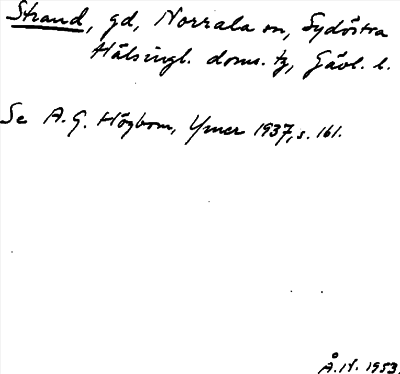 Strand, gd, Norrala sn, Sydöstra
Hälsingl. doms. tg, Gävl. l.
Se A. G. Högbom, Ymer 1937, s. 161.
Å. 1953.